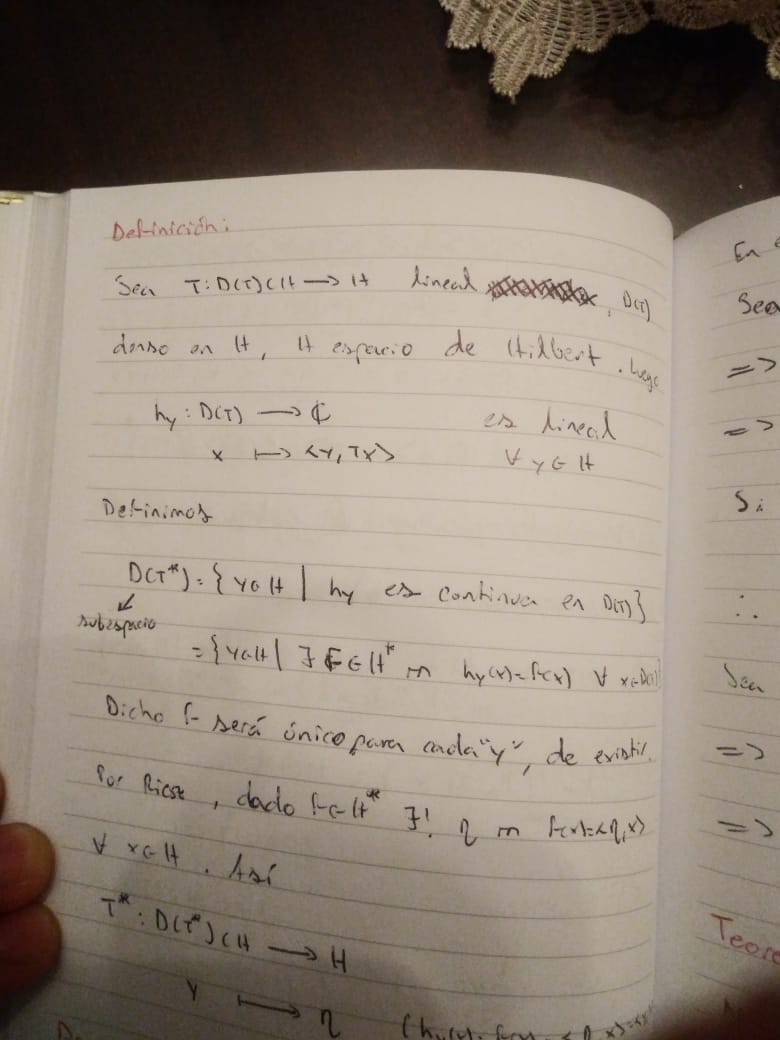 Definición:
Sea T: D(T) ⊂ H → H lineal , D(T)
denso en H, H espacio de Hilbert. Luego
hy : D(T) → ℂ es lineal
x ↦ <y, Tx> ∀ y ∈ H
Definimos
D(T*) = { y ∈ H | hy es continua en D(T)}
subespacio
= {y ∈ H | ∃ f ∈ H* m hy(x) = f(x) ∀ x ∈ D(T)}
Dicho f será único para cada "y", de existir.
Por Riesz, dado f ∈ H* ∃! η m f(x) = <η, x>
∀ x ∈ H. Así
T* : D(T*) ⊂ H → H
y ↦ η (hy(x) = f(x) = <η, x>
En
Sea
=>
=>
Si
∴
Sea
=>
=>
Teore